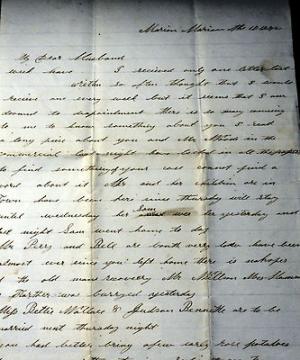 My Dear Husband
week have I received only one letter last
written so often thought that I would
receive one every week but it seems that I am
doomed to disapointment there is so many coming
to me to know something about you I read
a long piece about you and Mr in the
commercial have looked in all the papers
to find something your case cannot find a
word about it Mr and her children are in
Town have been here since thursday will stay
until wednesday her Sam was her yesterday and
last night Sam went home to day
Mr Perry and Bell are bouth very low have been
almost ever since you left home there is no hopes
of the old mans recovery Mr
Farther was burryed yesterday
Miss Bettie Wallace & Judson Bennette are to be
married next thursday night
you had better bring a few early rose potatoes